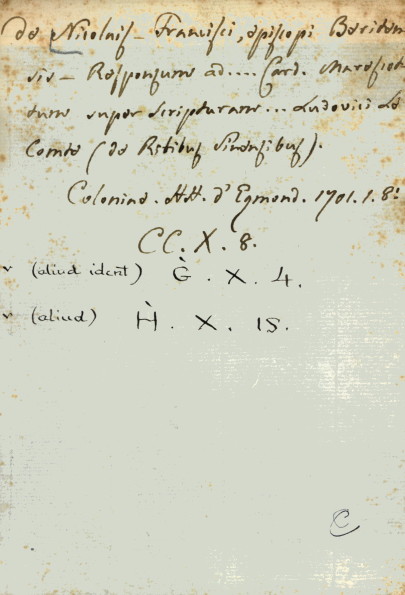 de Nicolais - Francisci, episcopi Beriten
sis - Responsum ad .... Card. Marescot
tum super scripturam ... Ludovici Le
Comte (de Ritibus sinensibus).
Coloniae. HH. d'Egmond. 1701. 1. 8.
CC. X. 8.
v (aliud ident) G̀. X. 4.
v (aliud) H̀. X. 15.
C